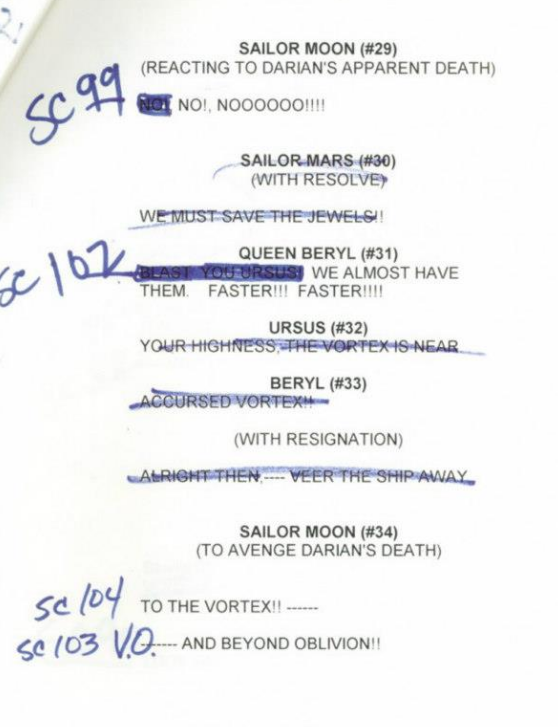 2!
SAILOR MOON (#29)
(REACTING TO DARIAN'S APPARENT DEATH)
SC 99
NO!, NO!, NOOOOOO!!!!
SAILOR MARS (#30)
(WITH RESOLVE)
WE MUST SAVE THE JEWELS!!
QUEEN BERYL (#31)
SC 102
BLAST YOU URSUS! WE ALMOST HAVE
THEM. FASTER!!! FASTER!!!!
URSUS (#32)
YOUR HIGHNESS, THE VORTEX IS NEAR
BERYL (#33)
ACCURSED VORTEX!!
(WITH RESIGNATION)
ALRIGHT THEN,---- VEER THE SHIP AWAY
SAILOR MOON (#34)
(TO AVENGE DARIAN'S DEATH)
SC 104 TO THE VORTEX!! ------
SC 103 V.O. ------ AND BEYOND OBLIVION!!